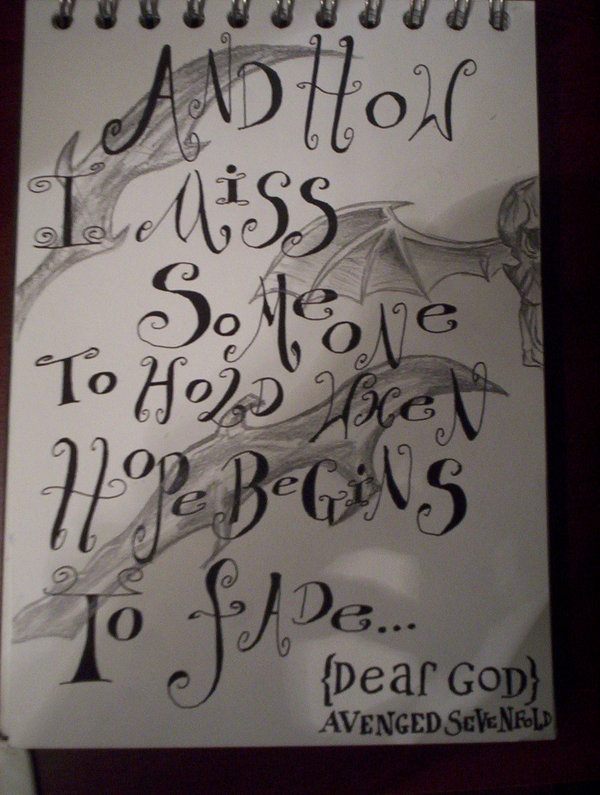 And How
I Miss
Someone
To Hold When
Hope Begins
To Fade...
{Dear God}
Avenged Sevenfold